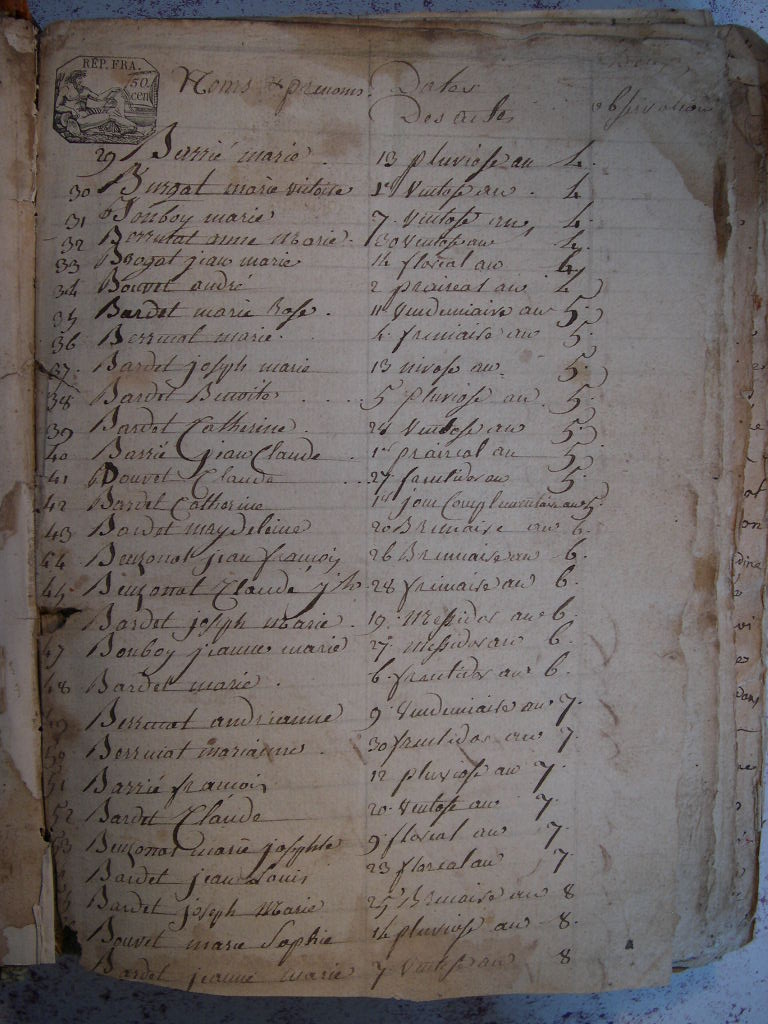 REP. FRA.
50
cen
Noms & prenoms. Dates
Des actes observation
29 Barrié marie . 13 pluviose an 4.
30 Burgat marie victoire 1er Ventose an . 4
31 Bonboy marie 7. Ventose an 4.
32 anne Marie . 30 Ventose an 4.
33 jean marie 14 floreal an 4
34 Bouvet andré 2 prairial an 4
35 Bardet marie Rose . 11 Vendemiaire an 5.
36 marie . 4. frimaire an 5.
37. Bardet joseph marie 13 nivose an . 5.
38 Bardet Benoite . . . . 5 pluviose an . 5.
39 Bardet Catherine . 24 Ventose an 5.
40 Barrié jean Claude . 1er prairial an 5.
41 Bouvet Claude ... 27 fructidor an 5.
42 Bardet Catherine 1er jour Complementaire an 5.
43 Bardet magdeleine 20 Brumaire an 6.
44 jean francois 26 Brumaire an . 6.
45 Claude jph . 28 frimaire an 6.
Bardet joseph Marie . 19. Messidor an 6.
47 Bonboy jeanne marie 27. Messidor an 6.
48 Bardet marie . 6. fructidor an 6.
49 andrianne 9 Vendemiaire an 7.
50 marianne . 30 fructidor an 7.
51 Barrié francois 12 pluviose an 7.
52 Bardet Claude 20. Ventose an 7.
53 marie josephte 9 floreal an 7.
Bardet jean Louis 23 floreal an 7.
Bardet joseph Marie 25 Brumaire an 8
Bouvet marie Sophie 14 pluviose an 8.
Bardet jeanne marie 7 Ventose an 8